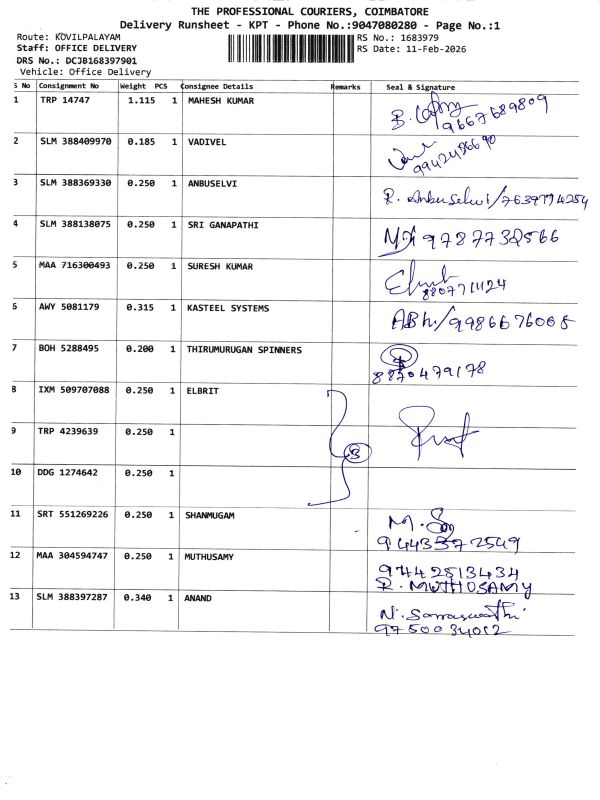 THE PROFESSIONAL COURIERS, COIMBATORE
Delivery Runsheet - KPT - Phone No.:9047080280 - Page No.:1
Route: KOVILPALAYAM RS No.: 1683979
Staff: OFFICE DELIVERY RS Date: 11-Feb-2026
DRS No.: DCJB168397901
Vehicle: Office Delivery
S No Consignment No Weight PCS Consignee Details Remarks Seal & Signature
1 TRP 14747 1.115 1 MAHESH KUMAR
9667689809
2 SLM 388409970 0.185 1 VADIVEL
3 SLM 388369330 0.250 1 ANBUSELVI
R. Anbuselvi/7639794254
4 SLM 388138075 0.250 1 SRI GANAPATHI
5 MAA 716300493 0.250 1 SURESH KUMAR
6 AWY 5081179 0.315 1 KASTEEL SYSTEMS
7 BOH 5288495 0.200 1 THIRUMURUGAN SPINNERS
8870479178
8 IXM 509707088 0.250 1 ELBRIT
9 TRP 4239639 0.250 1
3
10 DDG 1274642 0.250 1
11 SRT 551269226 0.250 1 SHANMUGAM
9443372549
12 MAA 304594747 0.250 1 MUTHUSAMY
9442513434
R. MUTHUSAMY
13 SLM 388397287 0.340 1 ANAND
N. Saraswathi
9750034012